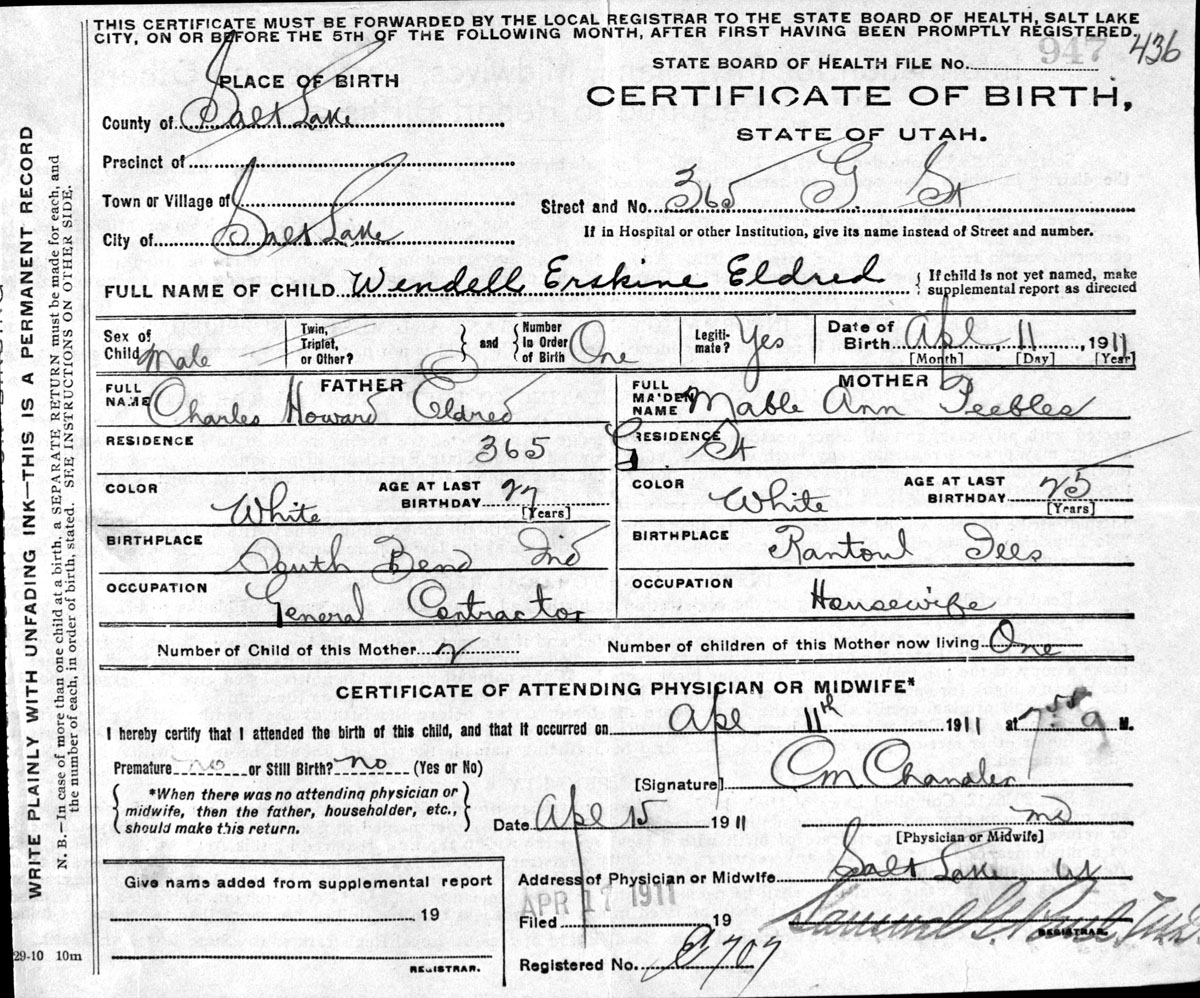 THIS CERTIFICATE MUST BE FORWARDED BY THE LOCAL REGISTRAR TO THE STATE BOARD OF HEALTH, SALT LAKE
CITY, ON OR BEFORE THE 5TH OF THE FOLLOWING MONTH, AFTER FIRST HAVING BEEN PROMPTLY REGISTERED.
947 436
PLACE OF BIRTH
STATE BOARD OF HEALTH FILE No.
CERTIFICATE OF BIRTH,
County of Salt Lake
STATE OF UTAH.
Precinct of
Town or Village of
Street and No. 365 G. St
City of Salt Lake
If in Hospital or other Institution, give its name instead of Street and number.
FULL NAME OF CHILD Wendell Erskine Eldred { If child is not yet named, make supplemental report as directed
Sex of Child Male
Twin, Triplet, or Other? } and { Number In Order of Birth One
Legiti-mate? Yes
Date of Birth Apl 11, 1911
[Month] [Day] [Year]
FATHER
FULL NAME Charles Howard Eldred
MOTHER
FULL MAIDEN NAME Mable Ann Peebles
RESIDENCE 365 G. St
RESIDENCE
COLOR White AGE AT LAST BIRTHDAY 27 [Years]
COLOR White AGE AT LAST BIRTHDAY 25 [Years]
BIRTHPLACE South Bend Ind
BIRTHPLACE Rantoul Ills
OCCUPATION General Contractor
OCCUPATION Housewife
Number of Child of this Mother 2
Number of children of this Mother now living One
CERTIFICATE OF ATTENDING PHYSICIAN OR MIDWIFE*
I hereby certify that I attended the birth of this child, and that it occurred on Apl 11th 1911 at 7:55 a M.
Premature no or Still Birth? no (Yes or No)
[Signature] Om Chandler
{ *When there was no attending physician or
midwife, then the father, householder, etc.,
should make this return. }
Date Apl 15 1911 MD
[Physician or Midwife]
Give name added from supplemental report
Address of Physician or Midwife Salt Lake Ut
APR 17 1911
19
Filed 19
REGISTRAR.
REGISTRAR.
Registered No. 707
29-10 10m
WRITE PLAINLY WITH UNFADING INK—THIS IS A PERMANENT RECORD
N. B.—In case of more than one child at a birth, a SEPARATE RETURN must be made for each, and
the number of each, in order of birth, stated. SEE INSTRUCTIONS ON OTHER SIDE.